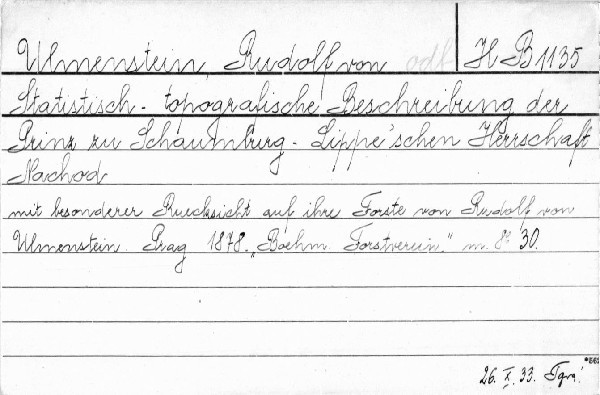 Ulmenstein, Rudolf von odf. H B 1135
Statistisch-topografische Beschreibung der
Prinz zu Schaumburg-Lippe'schen Herrschaft
Nachod
mit besonderer Ruecksicht auf ihre Forste von Rudolf von
Ulmenstein. Prag 1878. „Boehm. Forstverein." m. 8° 30.
26. X. 33.